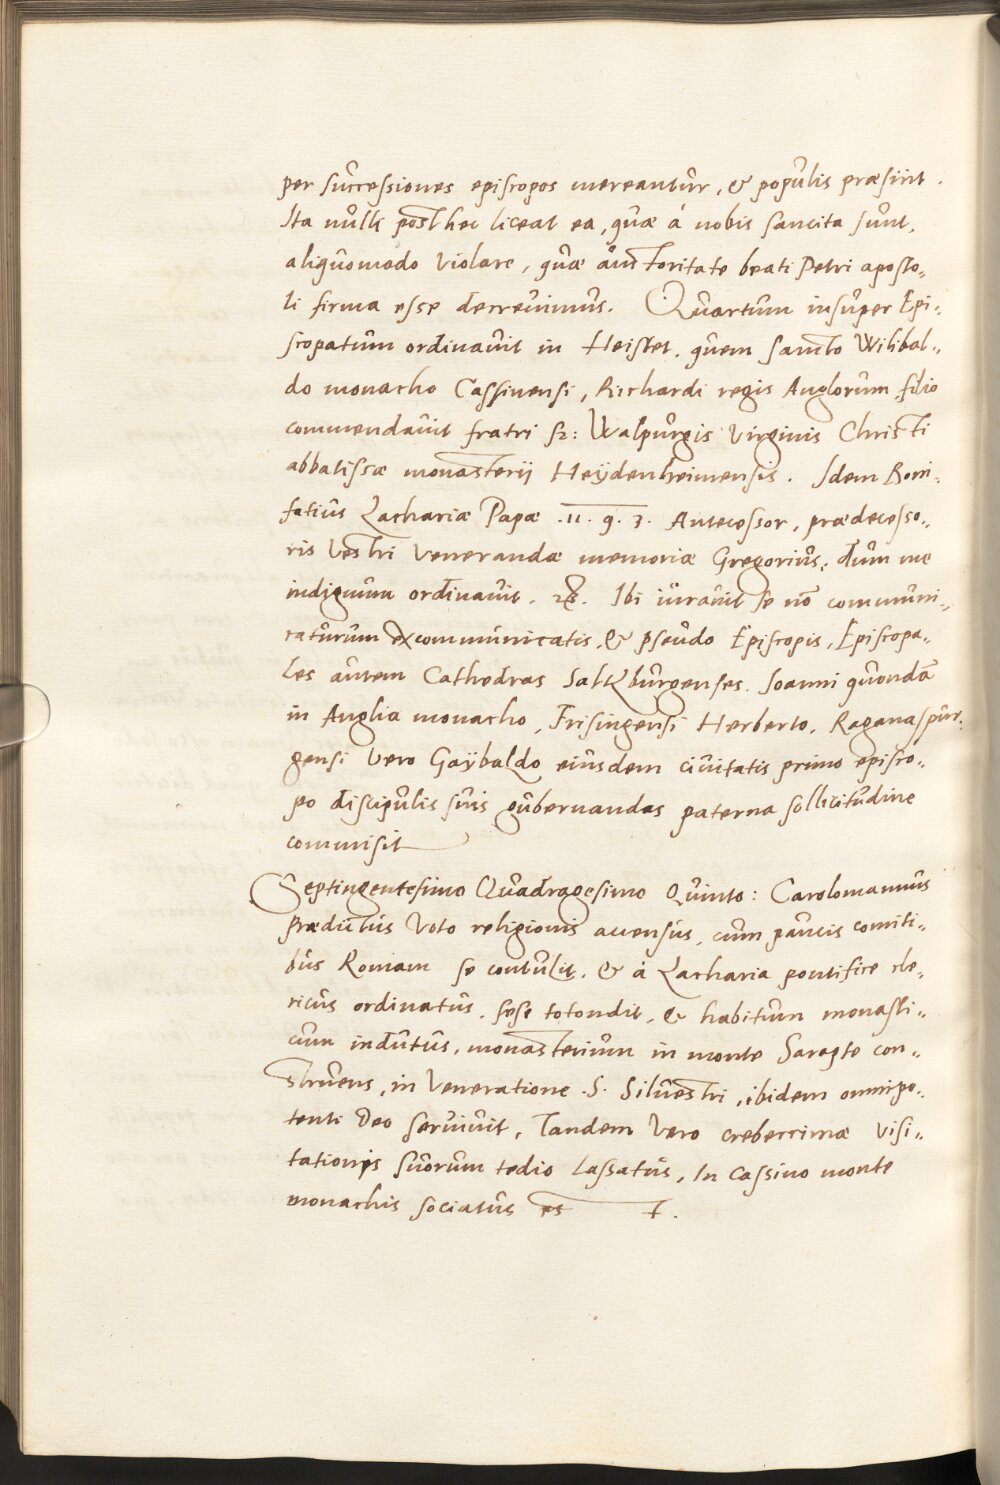 per successiones episcopos mereantur, & populis præsint.
Ita nulli post hec liceat ea, quæ á nobis sancita sunt,
aliquomodo violare, quæ auctoritate beati Petri aposto„
li firma esse decrevimus. Quartum insuper Epi„
scopatum ordinavit in Heistet, quem sancto Wilibal„
do monacho Cassinensi, Richardi regis Anglorum filio
commendavit fratri sz: Walpurgis Virginis Christi
abbatissæ monasterij Heÿdenheimensis. Idem Boni„
fatius Zachariæ Papæ .11. q. 3. Antecessor, prædecesso„
ris vestri venerandæ memoriæ Gregorius, dum me
indignum ordinavit. Ibi iuravit se nō communi„
caturum excommunicatis, & pseudo Episcopis, Episcopa„
les autem Cathedras Saltzburgenses. Joanni quondā
in Anglia monacho, Frisingensi Herberto, Raganaspur„
gensi vero Gaÿbaldo eiusdem civitatis primo episco„
po discipulis suis gubernandas paterna sollicitudine
commisit
Septingentesimo Quadragesimo Quinto: Carolomannus
prædictus voto religionis accensus, cum paucis comiti„
bus Romam se contulit, & à Zacharia pontifice cle„
ricus ordinatus, sese totondit, & habitum monasti„
cum indutus, monasterium in monte Sarapte con„
struens, in veneratione .S. Silvestri, ibidem omnipo„
tenti Deo servivit, Tandem vero creberrimæ visi„
tationis suorum tedio lassatus, In Cassino monte
monachis sociatus es t.